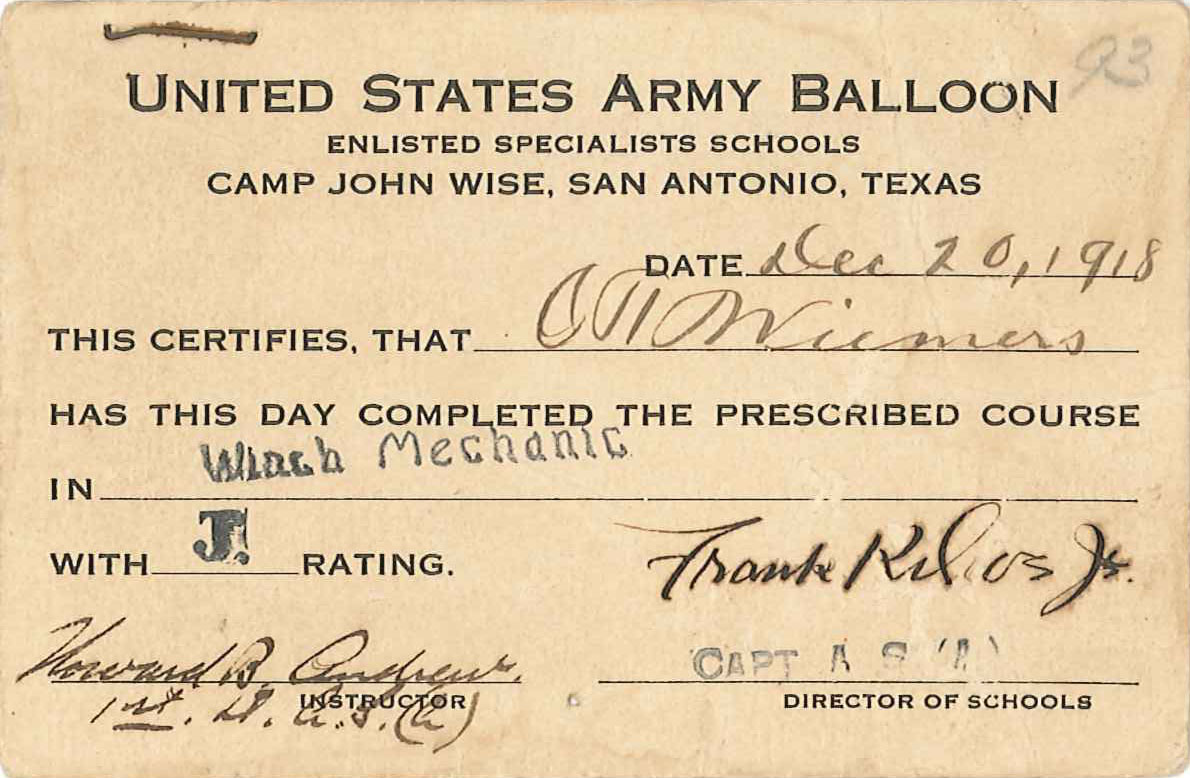 93
UNITED STATES ARMY BALLOON
ENLISTED SPECIALISTS SCHOOLS
CAMP JOHN WISE, SAN ANTONIO, TEXAS
DATE Dec 20, 1918
THIS CERTIFIES, THAT Wiemers
HAS THIS DAY COMPLETED THE PRESCRIBED COURSE
IN Winch Mechanic
WITH J. RATING.
Frank Jr.
Howard B. Andrews.
CAPT A S (A)
INSTRUCTOR
DIRECTOR OF SCHOOLS
1st. Lt. A.S.(A)